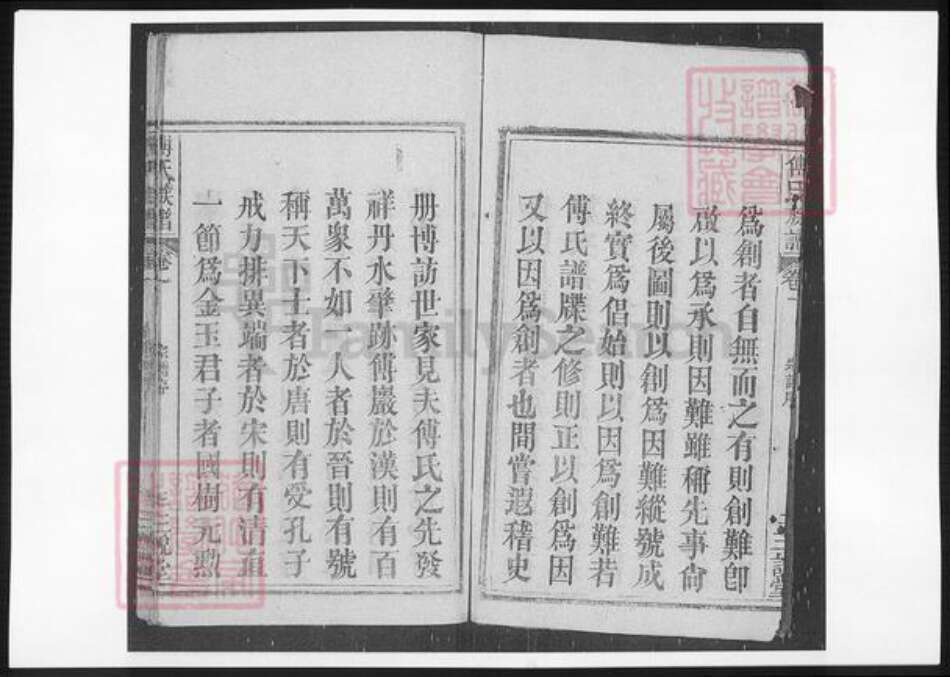 爲創者自無而之有則創難卽
啟以爲承則因難雖稱先事尙
屬後圖則以創爲因難縱號成
終實爲倡始則以因爲創難若
傅氏譜牒之修則正以創爲因
又以因爲創者也間嘗遐稽史
册博訪世家見夫傅氏之先發
祥丹水肇跡傅巖於漢則有百
萬衆不如一人者於晉則有號
稱天下士者於唐則有受孔子
戒力排異端者於宋則有清直
一節爲金玉君子者國樹元勲
傅氏族譜
卷一
傅氏族譜
卷一
譜學會
收藏
FamilySearch